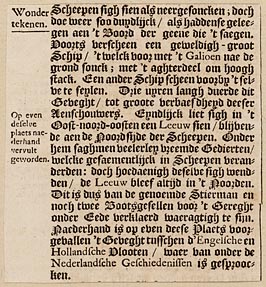 Wonder-
tekenen.
Op even
deselve
plaets nae-
derhand
vervult
geworden.
Scheepen sigh sien als neergesoncken; doch
doe weer soo duydlijck/ als haddense gelee-
gen aen 't Boord der geene die 't saegen.
Voorts verscheen een geweldigh-groot
Schip/ 't welck voor met 't Galioen nae de
grond sonck; met 't aghterdeel om hoogh
stack. Een ander Schip scheen voorby 't sel-
ve te seylen. Drie uyren langh duerde dit
Geveght/ tot groote verbaesdheyd deeser
Aenschouwers. Eyndlijck liet sigh in 't
Oost-noord-oosten een Leeuw sien/ blijven-
de aen de Noordsijde der Scheepen. Onder
hem saghmen veelerley vreemde Gedierten/
welcke gesaementlijck in Scheepen veran-
derden: doch hoedaenigh deselve sigh wend-
den/ de Leeuw bleef altijd in 't Noorden.
Dit is dus van de genoemde Stierman en
noch twee Bootsgesellen voor 't Gereght
onder Eede verklaerd waeraghtigh te sijn.
Naederhand is op even deese Plaets voor-
gevallen 't Geveght tusschen d'Engelsche en
Hollandsche Vlooten/ waer van onder de
Nederlandsche Geschiedenissen is gesproo-
ken.